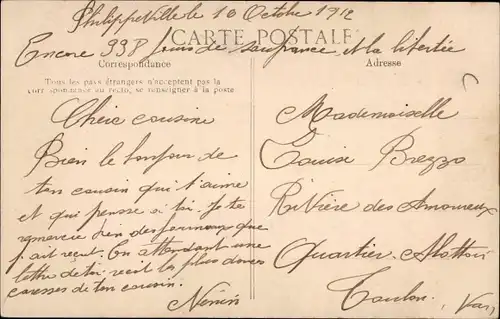 Philippeville le 10 Octobre 1912
CARTE POSTALE
Encore 338 jours de soufrance et la libertée
Correspondance
Adresse
Tous les pays étrangers n'acceptent pas la
correspondance au recto, se renseigner à la poste
Chere cousine
Bien le bonjour de
ton cousin qui t'aime
et qui pensse a toi je te
remercie bien des journaux que
j'ait recut. En attendant une
lettre de toi recoit la plus douce
caresses de ton cousin.
Ninin
Mademoiselle
Louise Brezzo
Rivière des Amoureux
Quartier Abattoir
Toulon. Var